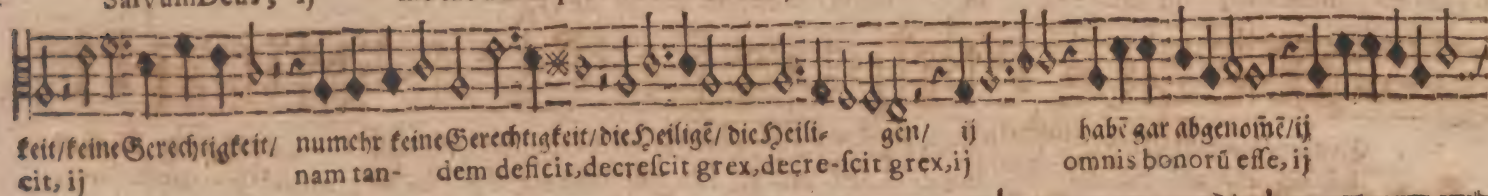 Salvum Deus, ij
keit/keine Gerechtigkeit/ numehr keine Gerechtigkeit/die Heiligē/die Heili- gen/ ij habē gar abgenom̄ē/ij
cit, ij nam tan- dem deficit,decreſcit grex,decre-ſcit grex,ij omnis bonorū eſſe, ij